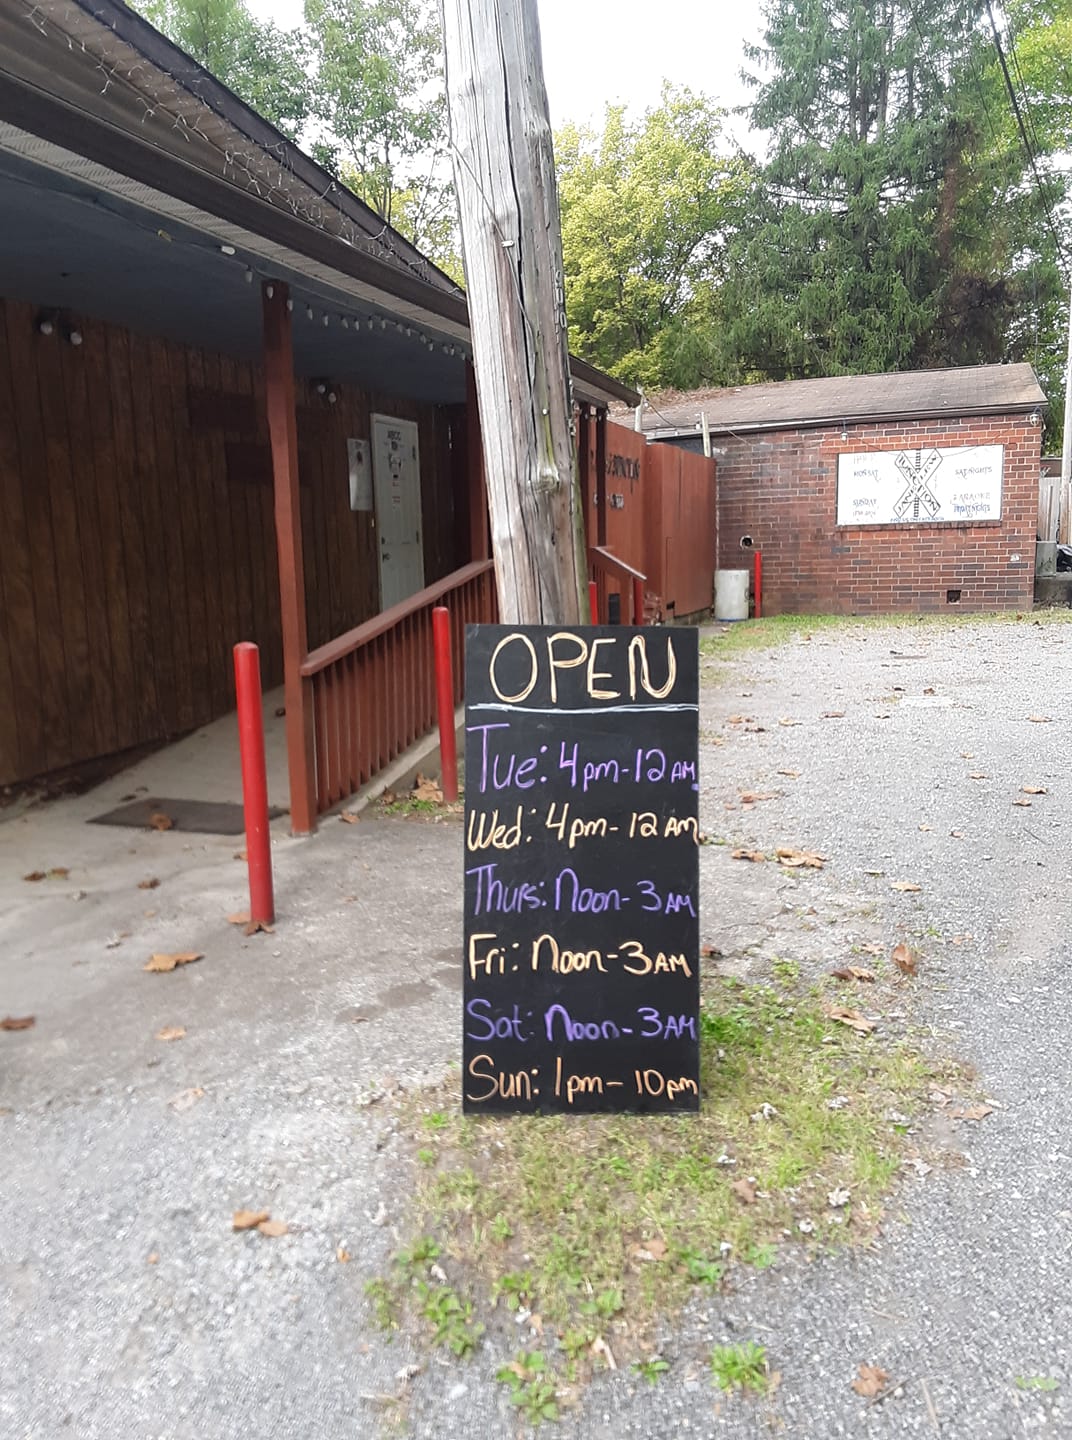 OPEN
Tue: 4pm-12AM
Wed: 4pm-12AM
Thurs: Noon-3AM
Fri: Noon-3AM
Sat: Noon-3AM
Sun: 1pm-10pm
MON-SAT
SAT NIGHTS
SUNDAY
KARAOKE
JUNCTION